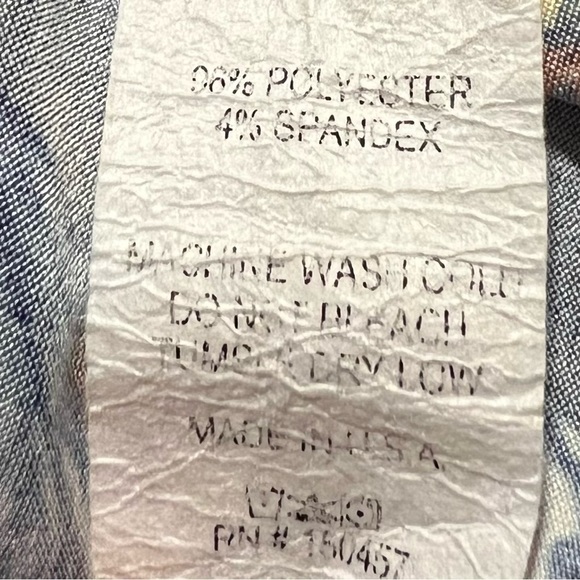 96% POLYESTER
4% SPANDEX
MACHINE WASH COLD
DO NOT BLEACH
TUMBLE DRY LOW
MADE IN U.S.A.
RN # 150457